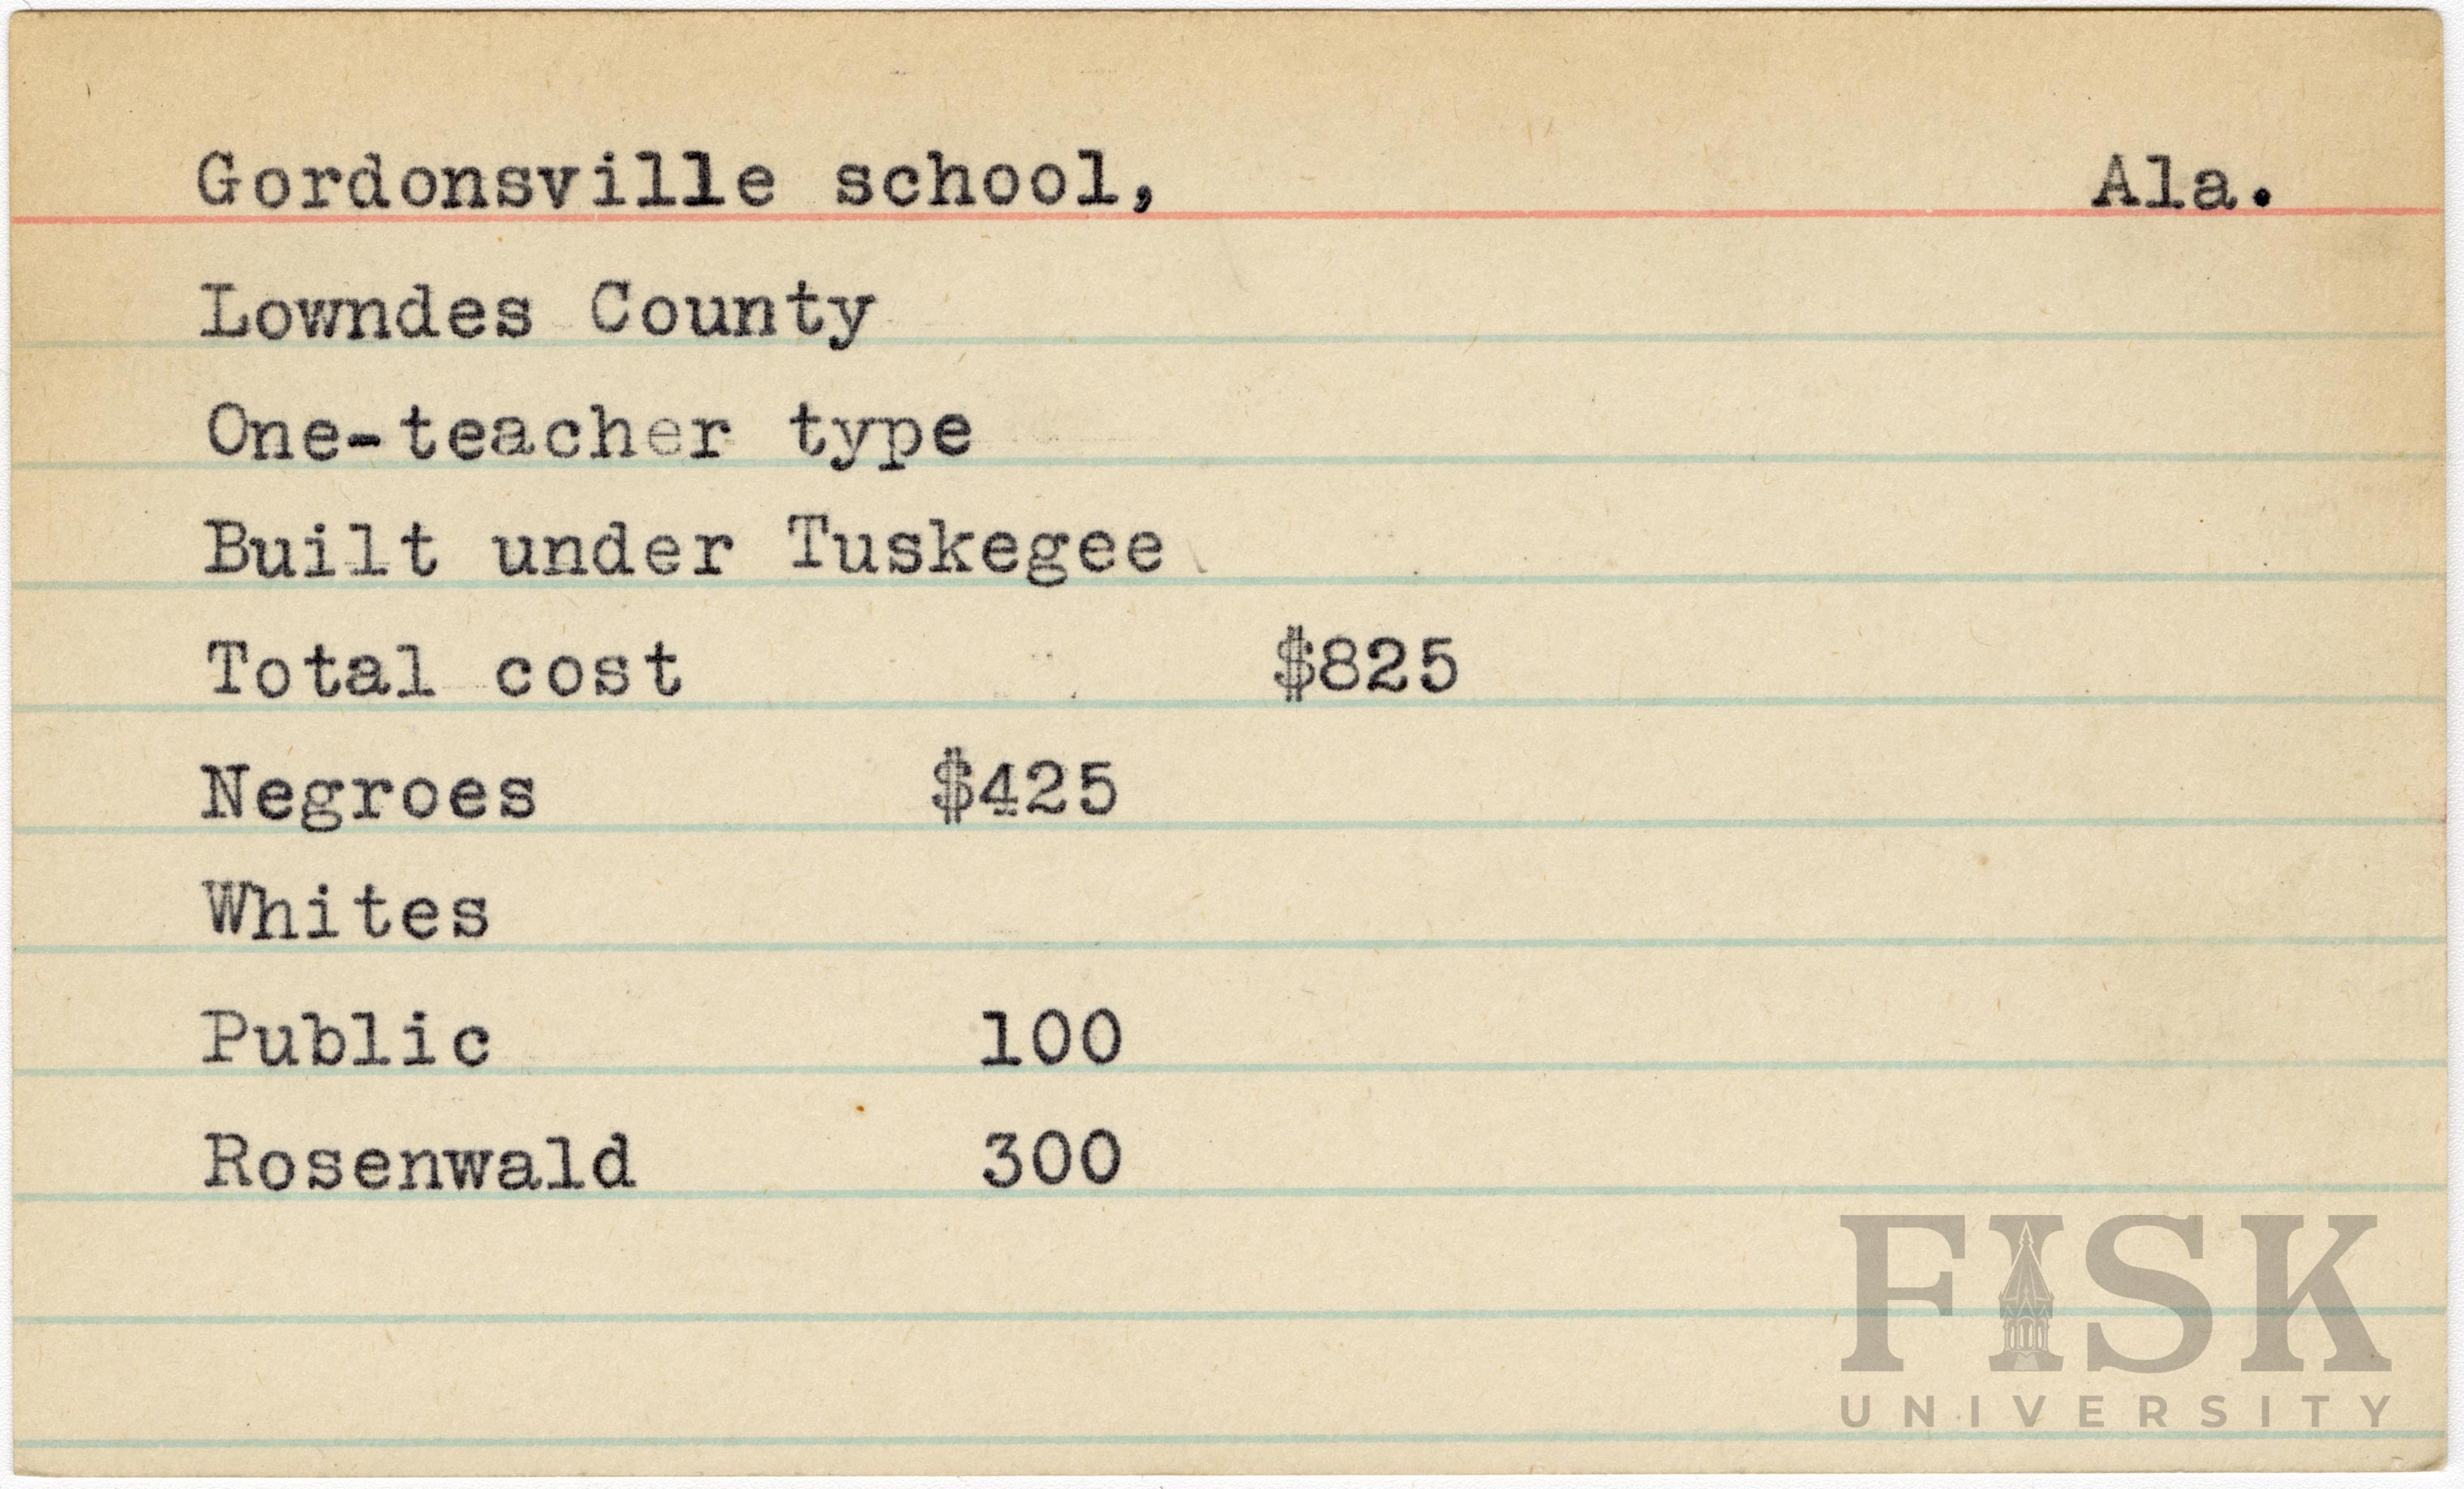 Gordonsville school, Ala.
Lowndes County
One-teacher type
Built under Tuskegee
Total cost $825
Negroes $425
Whites
Public 100
Rosenwald 300
FISK
UNIVERSITY